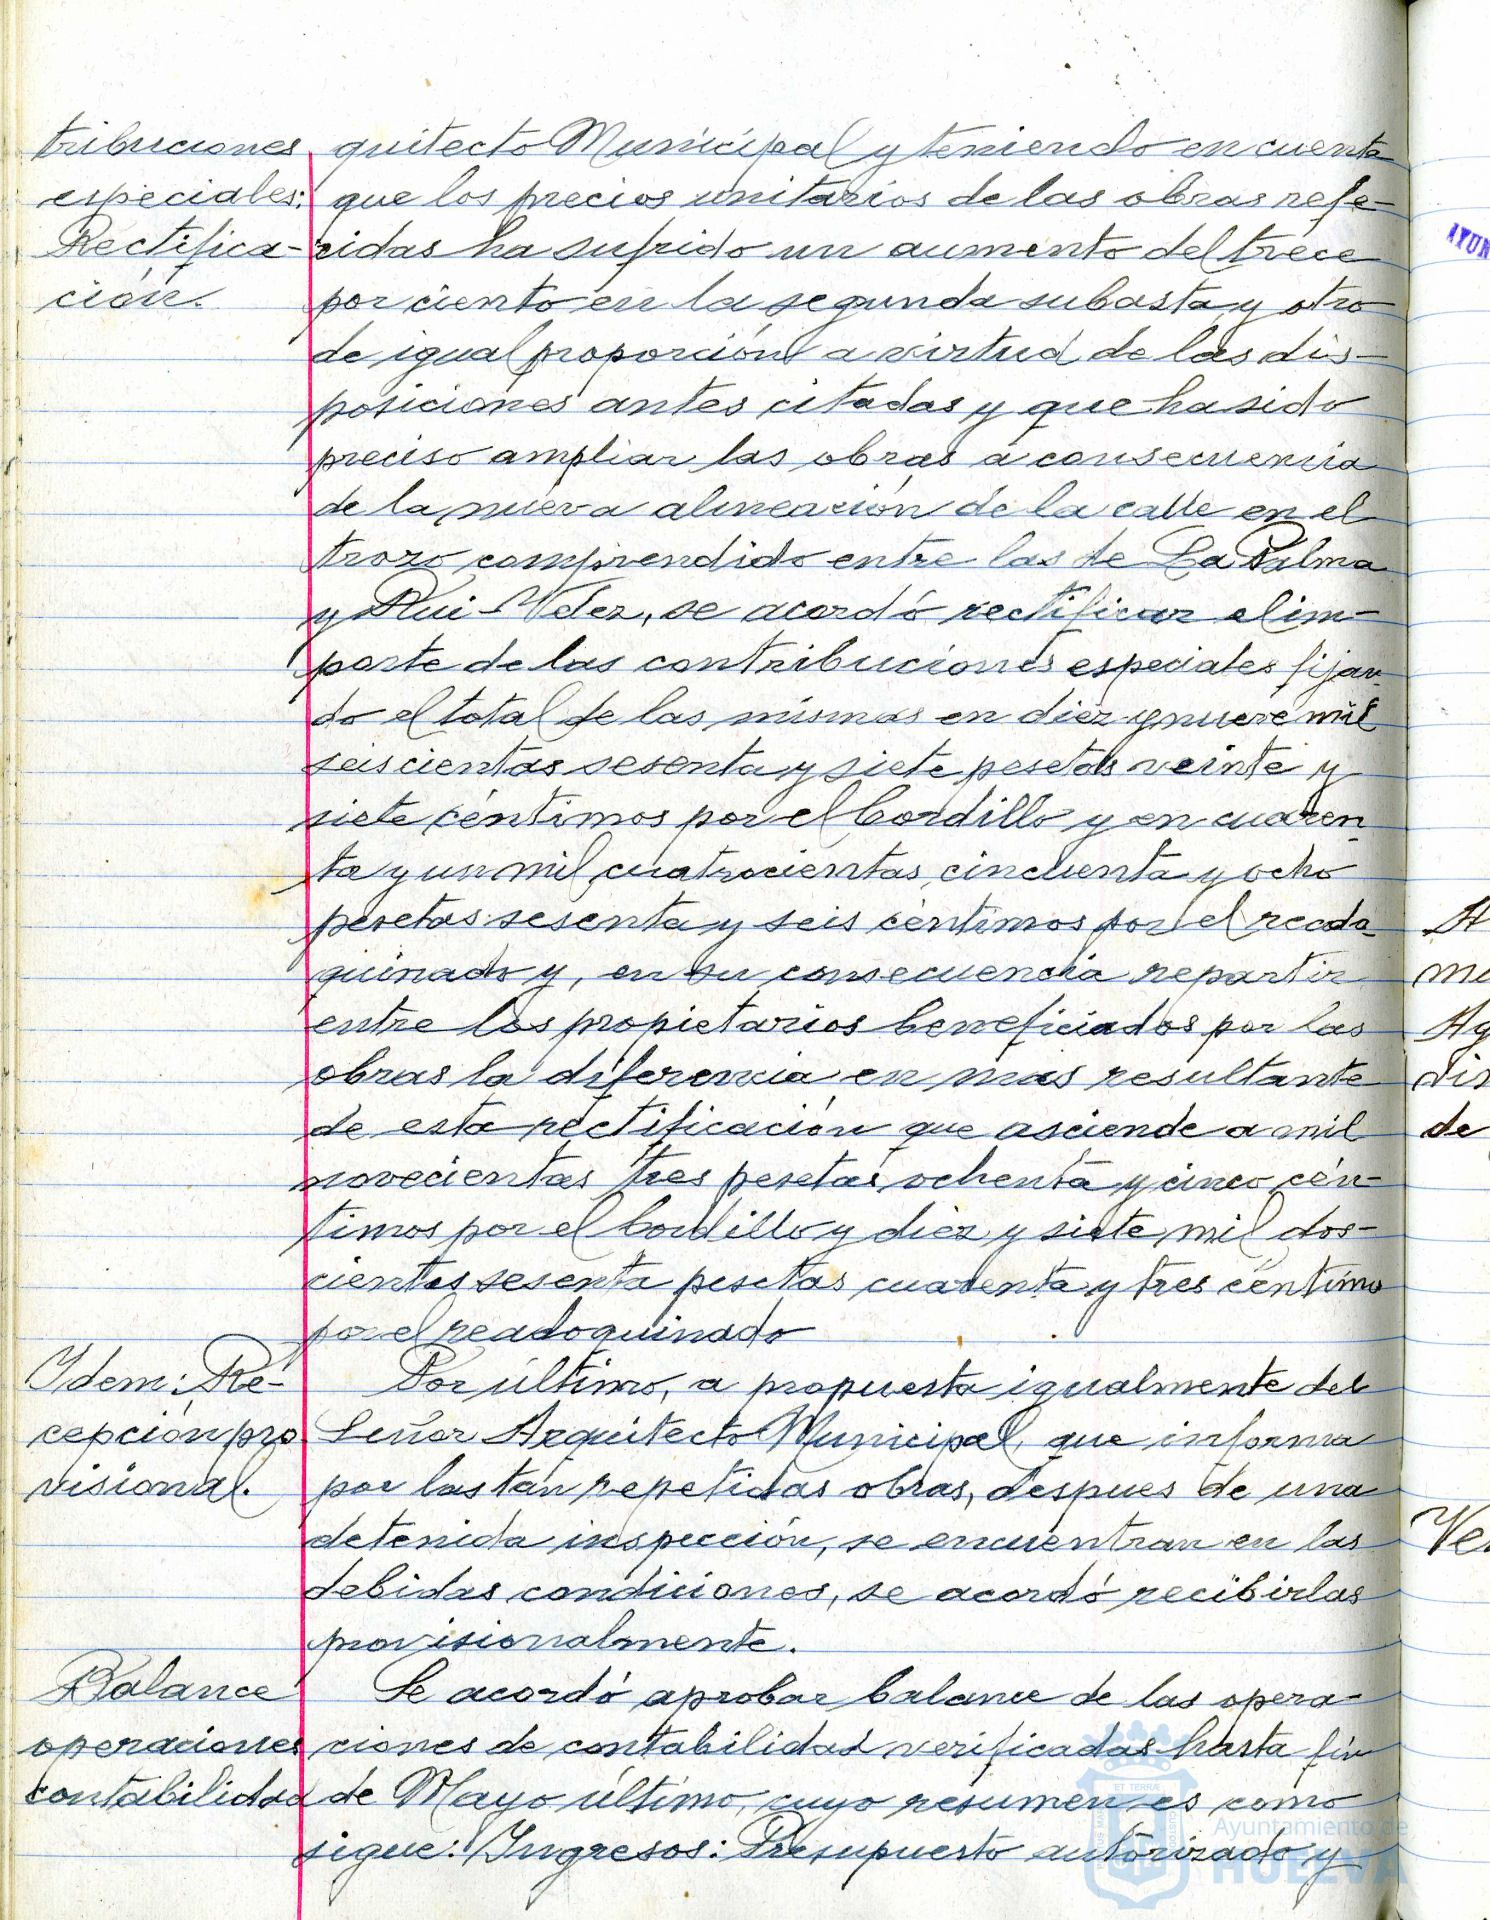 tribuciones
especiales:
Rectifica-
ción.
quitecto Municipal y teniendo en cuenta
que los precios unitarios de las obras refe-
ridas ha sufrido un aumento del trece
por ciento en la segunda subasta y otro
de igual proporción a virtud de las dis-
posiciones antes citadas y que ha sido
preciso ampliar las obras a consecuencia
de la nueva alineación de la calle en el
trozo comprendido entre las de La Palma
y Rui-Velez, se acordó rectificar el im-
porte de las contribuciones especiales fijan-
do el total de las mismas en diez y nueve mil
seiscientas sesenta y siete pesetas veinte y
siete céntimos por el bordillo y en cuaren-
ta y un mil cuatrocientas cincuenta y ocho
pesetas sesenta y seis céntimos por el reado-
quinado y, en su consecuencia repartir
entre los propietarios beneficiados por las
obras la diferencia en mas resultante
de esta rectificación que asciende a mil
novecientas tres pesetas ochenta y cinco cén-
timos por el bordillo y diez y siete mil dos-
cientas sesenta pesetas cuarenta y tres céntimo
por el readoquinado
Idem: Re-
cepción pro
visional.
Por último, a propuesta igualmente del
Señor Arquitecto Municipal, que informa
por las tan repetidas obras, despues de una
detenida inspección, se encuentran en las
debidas condiciones, se acordó recibirlas
provisionalmente.
Balance
operaciones
contabilidad
Se acordó aprobar balance de las opera-
ciones de contabilidad verificadas hasta fin
de Mayo último, cuyo resúmen es como
sigue: Ingresos: Presupuesto autorizado y
Ayuntamiento de
HUELVA